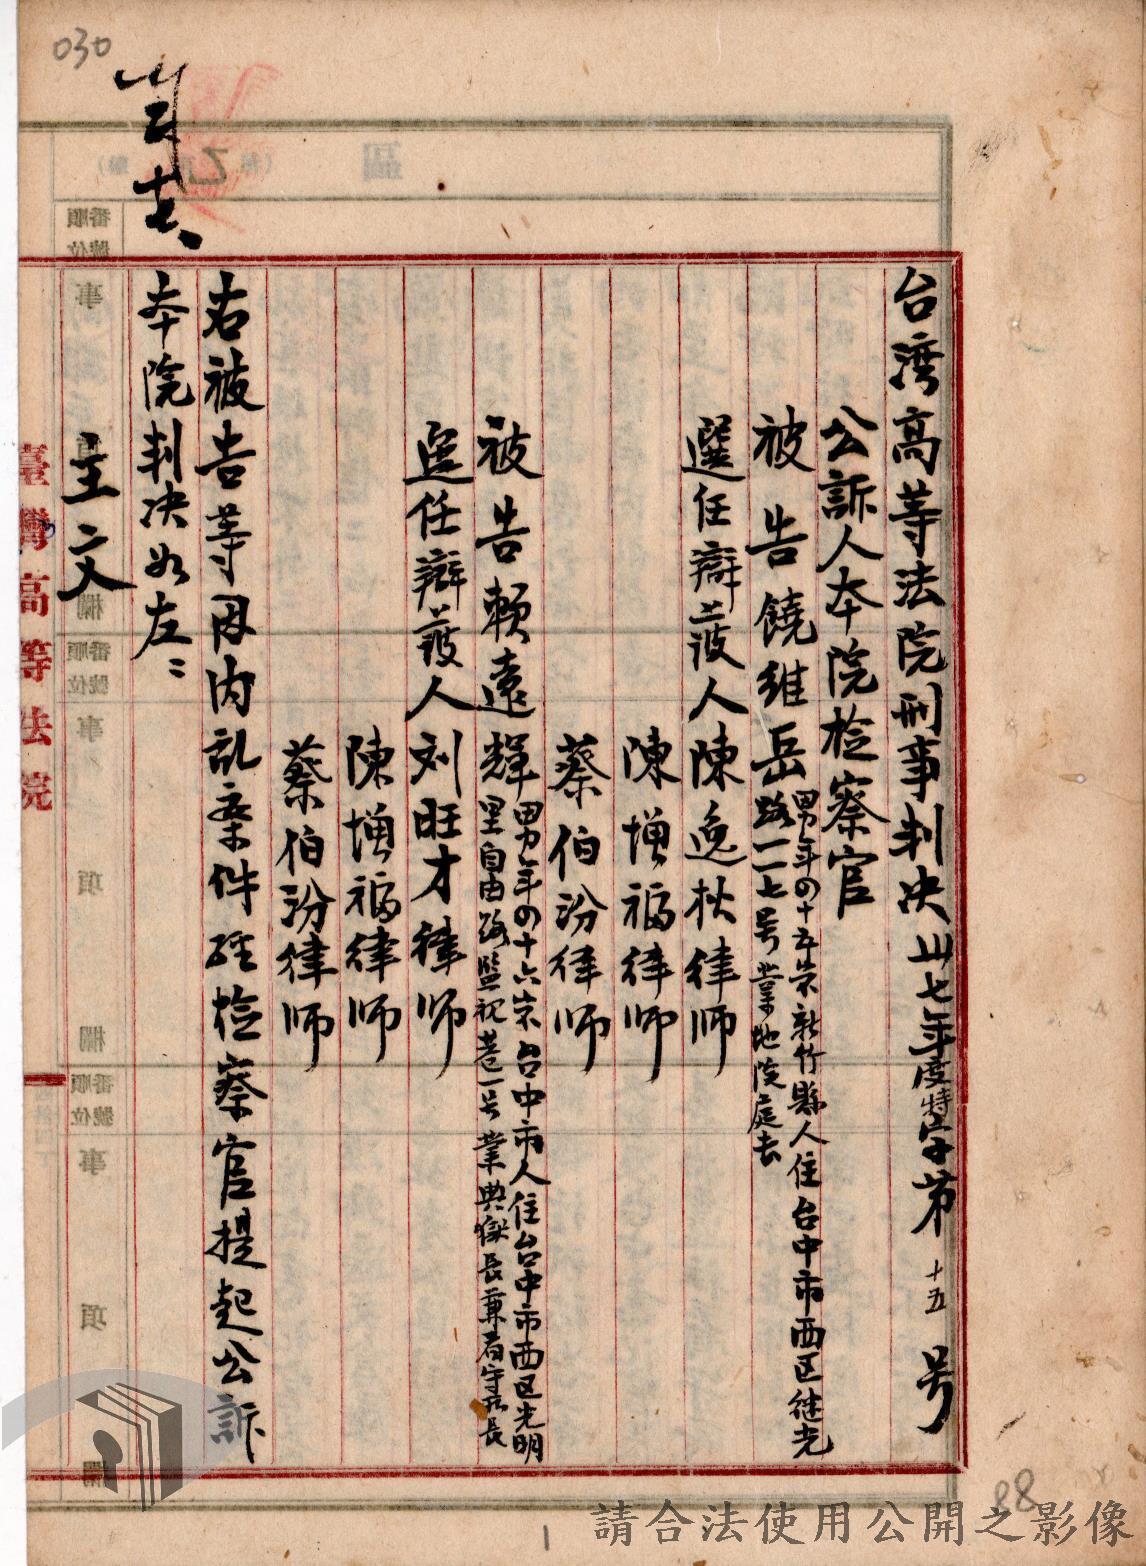 030
台湾高等法院刑事判决卅七年度特字第十五号
公訴人本院检察官
被告饒維岳男年四十五岁新竹縣人住台中市西区继光路一一七号業地院庭長
選任辯護人陳逸松律師
陳增福律師
蔡伯汾律師
被告賴遠輝男年四十六岁台中市人住台中市西区光明里自由路監視巷一号業典獄長兼看守所長
选任辯護人刘旺才律師
陳增福律師
蔡伯汾律師
右被告等因内乱案件経检察官提起公訴
本院判决如左：
主文
臺灣高等法院
88
1
請合法使用公開之影像